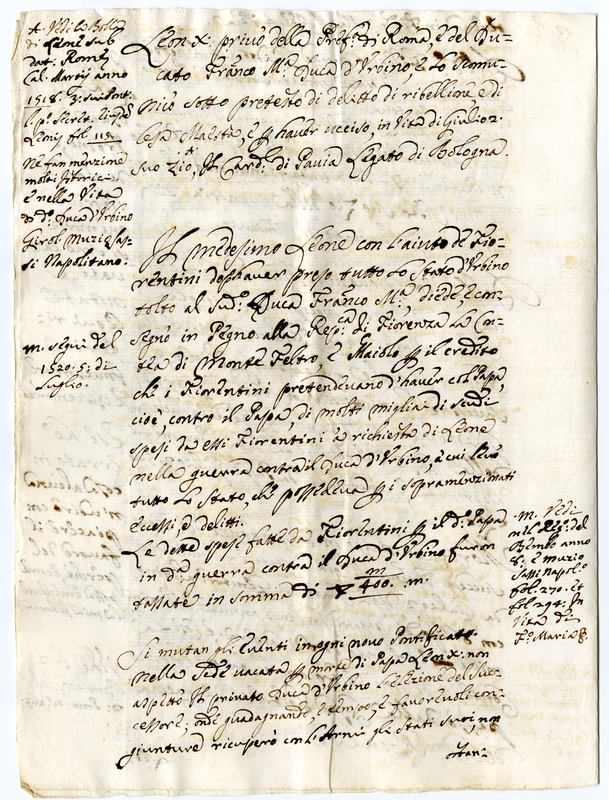 A. Vedi la Bolla
di Leone sub
dat. Romę
Cal. Martij anno
1518.
Leonis fol. 115.
Ne fan menzione
molti Istorici
e nella Vita
di d.º Duca d'Urbino
Girol. Muzio, Sas-
si Napolitano.
Leon X. privò della Pref.ª di Roma, e del Du-
cato Franc.o M.ª Duca d'Urbino, e lo scomu-
nicò sotto pretesto di delitto di ribellione e di
lesa Maestà, e p haver ucciso, in Vita di Giulio 2.
suo Zio, Il Card.l di Pavia Legato di Bologna.
Il medesimo Leone con l'aiuto de Fio-
rentini dopò haver preso tutto lo stato d'Urbino
tolto al sud.º Duca Franc.o M.ª diede, e con-
segnò in Pegno alla Rep.ca di Fiorenza la Con-
tea di Monte Feltro, e Maiolo p il credito
che i Fiorentini pretendevano d'haver col Papa,
cioè, contro il Papa, di molti migliaia di scudi
spesi da essi Fiorentini à richiesta di Leone
nella guerra contra il Duca d'Urbino, à cui levò
tutto lo stato, che possedeva p i sopramenzionati
eccessi, e delitti.
m. seguì del
1520. 5. di
Luglio.
Le dette spese fatte da Fiorentini p il d.º Papa
in d.ª guerra contra il Duca d'Urbino furon
tassate in somma di 400. m.
m. Vedi
nel Reg.º del
Bembo anno
8. e Muzio
Sassi Napol.º
fol. 270. et
fol 294. In
Vita di
F.º Maria
Si mutan gli eventi in ogni novo Pontificato.
Nella sede vacata p morte di Papa Leon X. non
aspettò Il privato Duca d'Urbino l'elezione del Suc-
cessore; onde guadagnando, e tempo, e favorevoli con-
giunture ricuperò con l'Armi gli stati suoi, non
ostan=